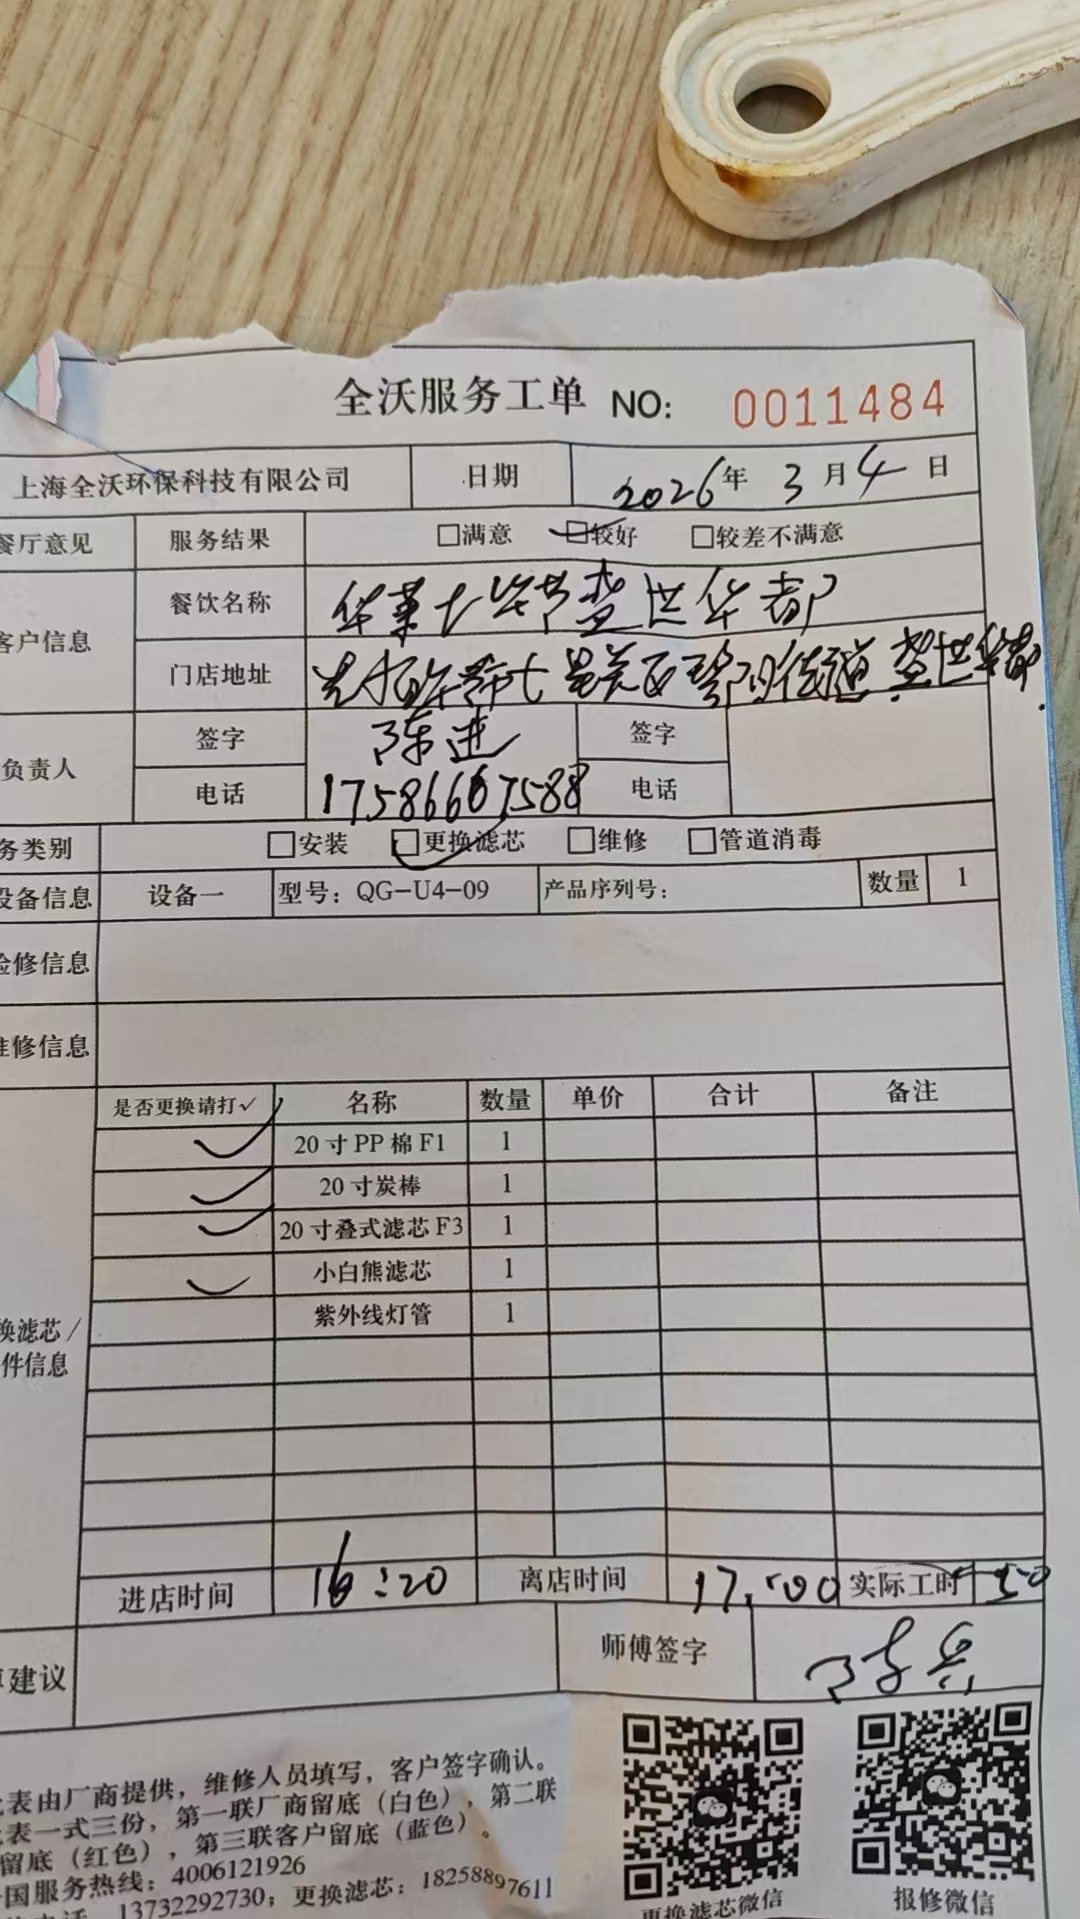 全沃服务工单 NO: 0011484
上海全沃环保科技有限公司 日期 2026年 3月4日
餐厅意见 服务结果 □满意 □较好 □较差不满意
客户信息 餐饮名称 华莱士毕节 世华都
门店地址 七星关区 街道 世华都
负责人 签字 陈进 签字
电话 17586667588 电话
务类别 □安装 □更换滤芯 □维修 □管道消毒
设备信息 设备一 型号：QG-U4-09 产品序列号： 数量 1
检修信息
维修信息
是否更换请打✓ 名称 数量 单价 合计 备注
✓ 20寸PP棉F1 1
✓ 20寸炭棒 1
✓ 20寸叠式滤芯F3 1
✓ 小白熊滤芯 1
紫外线灯管 1
换滤芯/
件信息
进店时间 16:20 离店时间 17:00 实际工时 50
建议 师傅签字
表由厂商提供，维修人员填写，客户签字确认。
表一式三份，第一联厂商留底（白色），第二联
留底（红色），第三联客户留底（蓝色）。
国服务热线：4006121926
13732292730；更换滤芯：18258897611
更换滤芯微信 报修微信